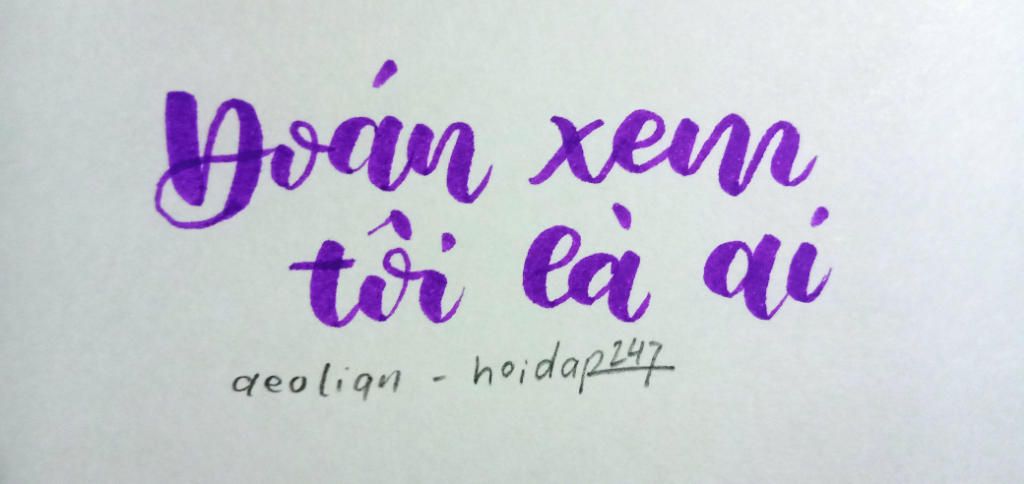 Đoán xem
tôi là ai
aeolian - hoidap247